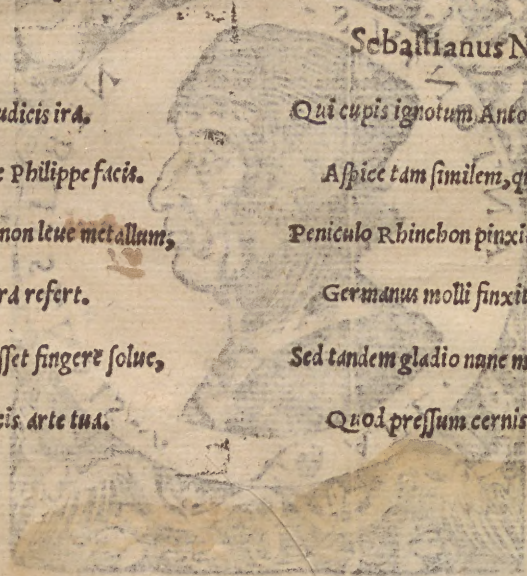 Sebastianus N
udicis ira.
e Philippe facis.
non leue metallum,
ra refert.
sset fingere solue,
cis arte tua.
Qui cupis ignotum Anto
Aspice tam similem, qu
Peniculo Rhinchon pinxi
Germanus molli finxit
Sed tandem gladio nunc m
Quod pressum cernis